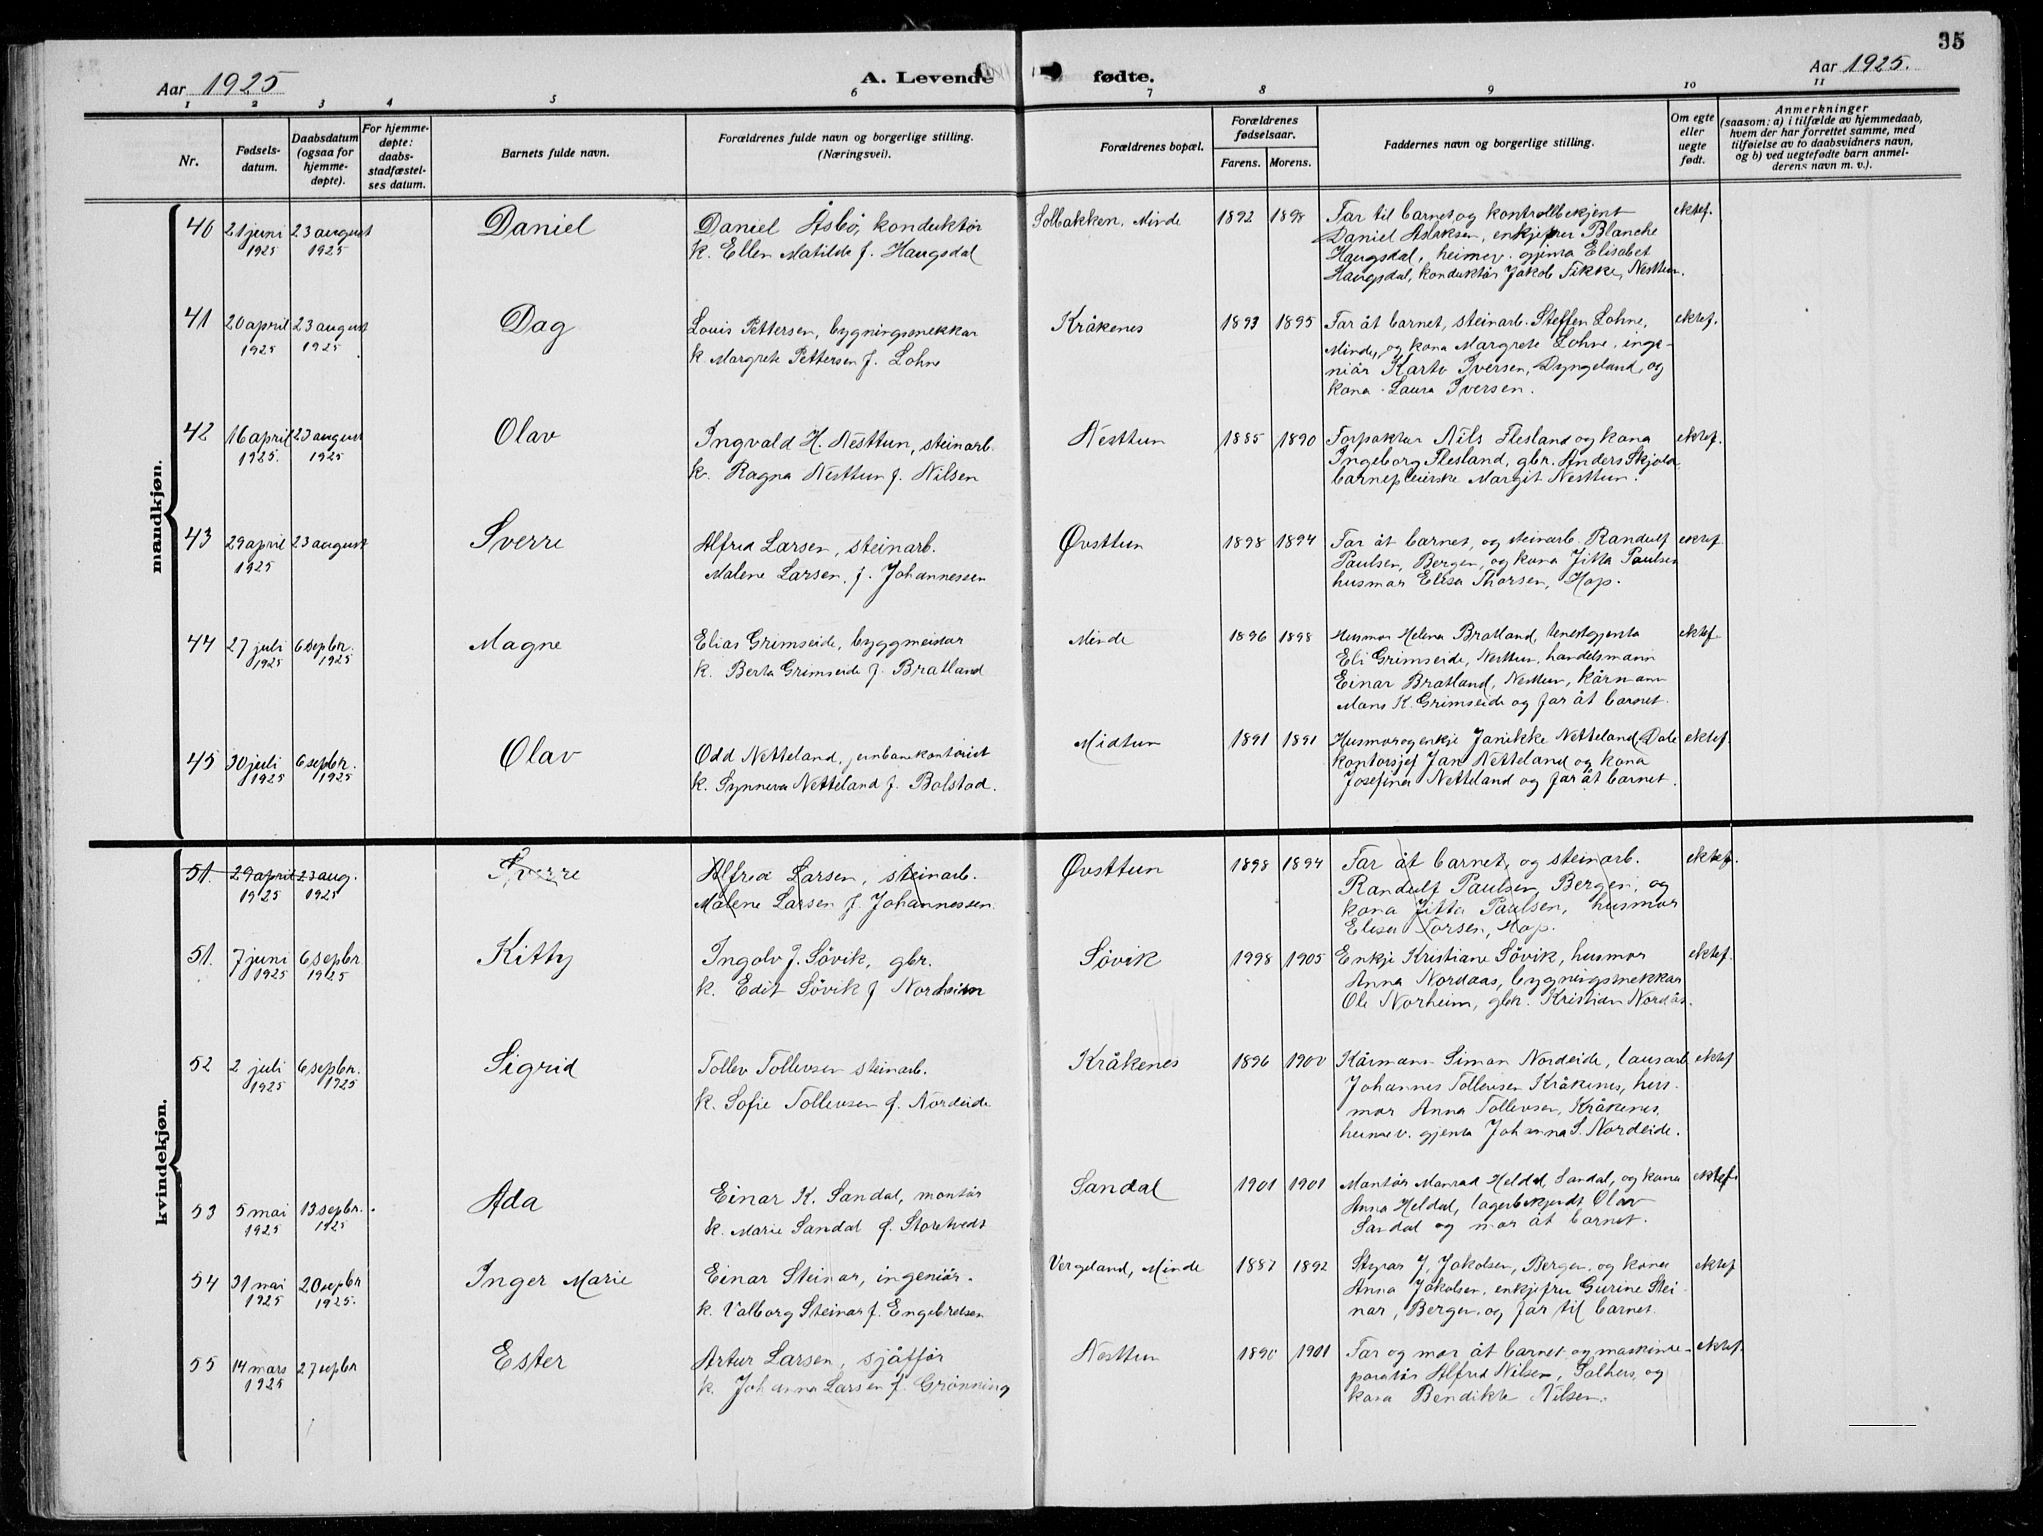 35
Aar 1925
A. Levende fødte.
Aar 1925.
1 2 3 4 5 6 7 8 9 10 11
Nr.
Fødsels-
datum.
Daabsdatum
(ogsaa for
hjemme-
døpte).
For hjemme-
døpte:
daabs-
stadfæstel-
ses datum.
Barnets fulde navn.
Forældrenes fulde navn og borgerlige stilling.
(Næringsvei).
Forældrenes bopæl.
Forældrenes
fødselsaar.
Farens. Morens.
Faddernes navn og borgerlige stilling.
Om egte
eller
uegte
født.
Anmerkninger
(saasom: a) i tilfælde av hjemmedaab,
hvem der har forrettet samme, med
tilføielse av to daabsvidners navn,
og b) ved uegtefødte barn anmel-
derens navn m. v.).
mandkjøn.
40 21 juni 1925 23 august 1925 Daniel
Daniel Åsbø, konduktør
k. Ellen Matilde f. Haugsdal
Solbakken, Minde 1892 1898
Far til barnet, og kontrollbekjent
Daniel Aslaksen, enkjefru Blanche
Haugsdal, heimev. gjenta Elisabet
Haugsdal, konduktør Jakob Fikke, Nesttun.
ektef.
41 20 april 1925 23 august 1925 Dag
Louis Pettersen, bygningssnekkar
k. Margrete Pettersen f. Lohne
Kråkenes 1893 1895
Far åt barnet, steinarb. Steffen Lohne,
Minde, og kona Margrete Lohne, inge-
niør Karto Iversen, Dyngeland, og
kona Laura Iversen.
ektef.
42 16 april 1925. 23 august 1925 Olav
Ingvald H. Nesttun, steinarb.
k. Ragna Nesttun f. Nilsen
Nesttun 1885 1890
Forpaktar Nils Flesland og kona
Ingeborg Flesland, gbr. Anders Skjold
barnepleierske Margit Nesttun.
ektef.
43 29 april 1925 23 august Sverre
Alfred Larsen, steinarb.
Malene Larsen, f. Johannessen
Øvsttun 1898 1894
Far åt barnet, og steinarb. Randulf
Paulsen, Bergen, og kona Jitta Paulsen
husmor Elisa Thorsen, Hop.
ektef.
44 27 juli 1925 6 septbr. 1925 Magne
Elias Grimseide, byggmeistar
k. Berta Grimseide f. Bratland
Minde 1896 1898
Husmor Helena Bratland, tenestgjenta
Eli Grimseide, Nesttun, handelsmann
Einar Bratland, Nesttun, kårmann
Mons K. Grimseide og far åt barnet.
ektef.
45 30 juli 1925 6 septbr. 1925 Olav
Odd Netteland, jernbanekontorist
k. Synneva Netteland f. Bolstad.
Midtun 1891 1891
Husmor og enkje Janikke Netteland, Dale
kontorsjef Jan Netteland og kona
Josefina Netteland og far åt barnet.
ektef.
kvindekjøn.
51. 29 april 1925 23 aug. 1925 Sverre
Alfred Larsen, steinarb.
Malene Larsen f. Johannessen
Øvsttun 1898 1894
Far åt barnet, og steinarb.
Randulf Paulsen, Bergen, og
kona Jitta Paulsen, husmor
Elisa Torsen, Hop.
ektef.
51. 7 juni 1925 6 septbr 1925 Kitty
Ingolv J. Søvik, gbr.
k. Edit Søvik f Norheim
Søvik 1998 1905
Enkje Kristiane Søvik, husmor
Anna Nordaas, bygningssnekkar
Ole Norheim, gbr. Kristian Nordås.
ektef.
52 2 juli 1925 6 septbr. 1925 Sigrid
Tollev Tollevsen steinarb.
k. Sofie Tollevsen f. Nordeide
Kråkenes 1896 1900
Kårmann Simon Nordeide, lausarb
Johannes Tollevsen Kråkenes, hus-
mor Anna Tollevsen, Kråkenes,
heimev. gjenta Johanna S. Nordeide.
ektef
53 5 mai 1925 13 septbr. 1925 Ada
Einar K. Sandal, montør
k. Marie Sandal f. Storetvedt
Sandal 1901 1901
Montør Monrad Heldal, Sandal, og kona
Anna Heldal, lagerbekjendt Olav
Sandal og mor åt barnet.
ektef.
54 31 mai 1925 20 septbr 1925. Inger Marie
Einar Steinar, ingeniør.
k. Valborg Steinar f. Engebretsen
Vergeland, Minde 1887 1892
Styrar J. Jakobsen, Bergen, og kona
Anna Jakobsen, enkjefru Gurine Stei-
nar, Bergen, og far til barnet.
ektef
55 14 mars 1925 27 septbr Ester
Artur Larsen, sjåffør
k. Johanna Larsen f. Grønning
Nesttun 1890 1901
Far og mor åt barnet og maskinre-
paratør Alfred Nilsen, Solheis, og
kona Bendikte Nilsen.
ektef.